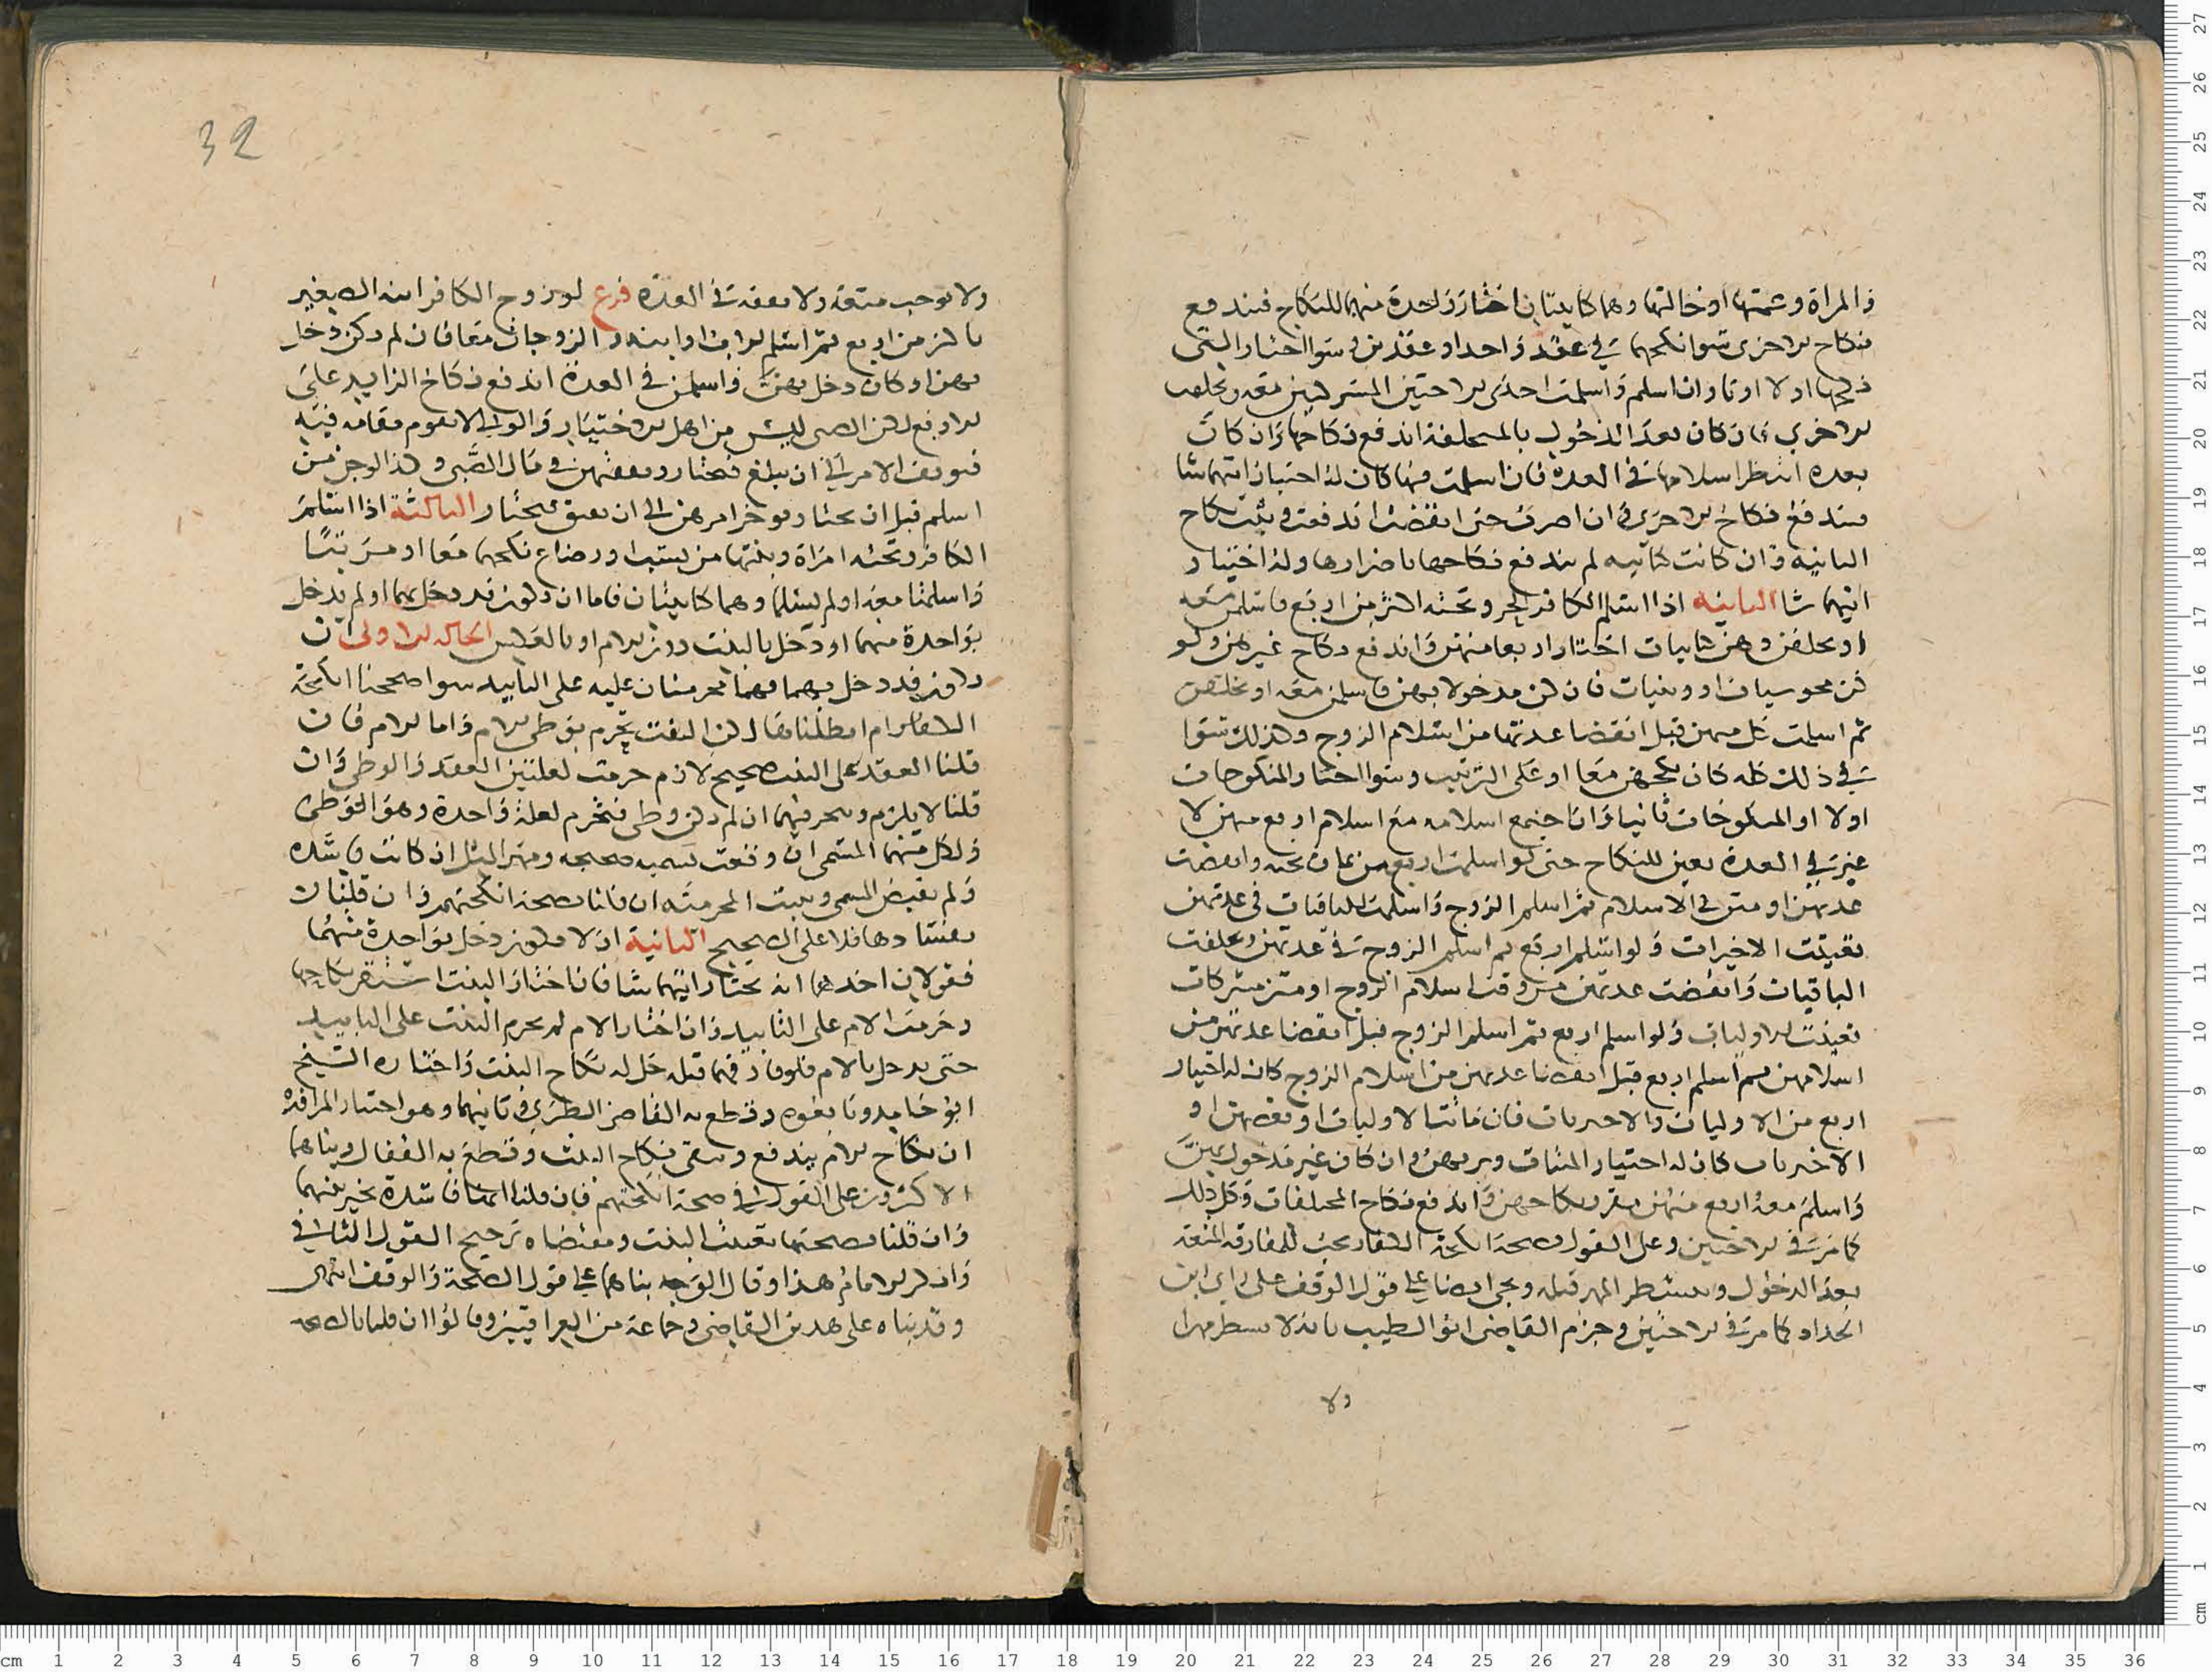 والمراة وعمتها او خالتها وهما كابيتان اختار واحدة منهما للنكاح فيندفع
نكاح الاخرى سوا نكحهما في عقد واحد او عقدين وسوا اختار التي
نكحها اولا او ثانيا وان اسلم واسلمت احدى الاختين المشركتين معه وتخلفت
الاخرى فان كان بعد الدخول بالمتخلفة اندفع نكاحها وان كان
بعده انتظر اسلامها في العدة فان اسلمت فيها كان له اختيار ايتهما شا
فيندفع نكاح الاخرى وان اصرت حتى انقضت اندفعت وثبت نكاح
الثانية وان كانت كتابيه لم يندفع نكاحها باصرارها وله اختيار
ايتهما شا الثانية اذا اسلم الكافر الحر وتحته اكثر من اربع فاسلمن معه
او تخلفن وهن كتابيات اختار اربعا منهن واندفع نكاح غيرهن ولو
كن مجوسيات او وثنيات فان كن مدخولا بهن فاسلمن معه او تخلفن
ثم اسلمت كل منهن قبل انقضا عدتها من اسلام الزوج وكذلك سوا
في ذلك كله كان نكحهن معا او على الترتيب وسوا اختار المنكوحات
اولا او المنكوحات ثانيا واذا اجتمع اسلامه مع اسلام اربع منهن لا
غير في العدة تعين للنكاح حتى لو اسلمت اربع من ثمان تحته وانقضت
عدتهن او متن في الاسلام ثم اسلم الزوج واسلمت الباقيات في عدتهن
تعينت الاخيرات ولو اسلم اربع ثم اسلم الزوج في عدتهن وتخلفت
الباقيات وانقضت عدتهن من وقت اسلام الزوج او متن مشركات
تعينت الاوليات ولو اسلم اربع ثم اسلم الزوج قبل انقضا عدتهن من
اسلامهن ثم اسلم اربع قبل انقضا عدتهن من اسلام الزوج كان له اختيار
اربع من الاوليات والاخيرات فان ماتت الاوليات او بعضهن او
الاخيرات كان له اختيار الميتات ويرثهن وان كان غير مدخول بهن
واسلم معه اربع منهن تقرر نكاحهن واندفع نكاح المتخلفات وكل ذلك
كما مر في الاختين وعلى القول بصحة انكحة الكفار يجب للمفارقة المتعة
بعد الدخول ويتشطر المهر قبله ويجي ايضا على قول الوقف على راي ابن
الحداد كما مر في الاختين وجزم القاضي ابو الطيب بانه لا يسطر مهرا
ولا
32
ولا يوجب متعة ولا نفقة في العدة فرع لو زوج الكافر ابنه الصغير
باكثر من اربع ثم اسلم الاب او ابنه والزوجات معا فان لم يكن دخل
بهن او كان دخل بهن واسلمن في العدة اندفع نكاح الزايد على
الاربع لكن الصبي ليس من اهل الاختيار والولي لا يقوم مقامه فيه
فيوقف الامر الى ان يبلغ فيختار ونفقتهن في مال الصبي وكذا لو جن من
اسلم قبل ان يختار ويوخر امرهن الى ان يفيق فيختار الثالثة اذا اسلم
الكافر وتحته امراة وبنتها من نسب او رضاع نكحهما معا او مرتبا
واسلمتا معه او لم يسلما وهما كتابيتان فاما ان يكون قد دخل بهما او لم يدخل
بواحدة منهما او دخل بالبنت دون الام او بالعكس الحالة الاولى ان
يكون قد دخل بهما فهما محرمتان عليه على التابيد سوا صححنا انكحة
الكفار ام ابطلناها لكن البنت تحرم بوطي الام واما الام فان
قلنا العقد على البنت صحيح لازم حرمت لعلتين العقد والوطي وان
قلنا لا يلزم ويحرفيها ان لم يكن وطي فتحرم لعلة واحدة وهو الوطي
ولكل منهما المسمى ان وقعت تسميه صحيحه ومهر المثل ان كانت فاسده
ولم تقبض المسمى وثبت المحرمية ان قلنا بصحة انكحتهم وان قلنا
بفسادها فلا على الصحيح الثانية ان لا يكون دخل بواحدة منهما
فقولان احدهما انه يختار ايتهما شا فان اختار البنت استقر نكاحها
وحرمت الام على التابيد وان اختار الام لم تحرم البنت على التابيد
حتى يدخل بالام فلو فارقها قبله حل له نكاح البنت واختاره الشيخ
ابو حامد وتابعوه وقطع به القاضي الطبري وثانيهما وهو اختيار المرافزه
ان نكاح الام يندفع ويبقى نكاح البنت وقطع به القفال وبناهما
الاكثرون على القولين في صحة انكحتهم فان قلنا انها فاسدة تخير بينهما
وان قلنا بصحتها تعينت البنت ومقتضاه ترجيح القول الثاني
وانكر الامام هذا وقال الوجه بناهما على قول الصحة والوقف انتهى
وقد بناه على هذين القاضي وجماعة من العراقيين وقالوا ان قلنا بالصحه